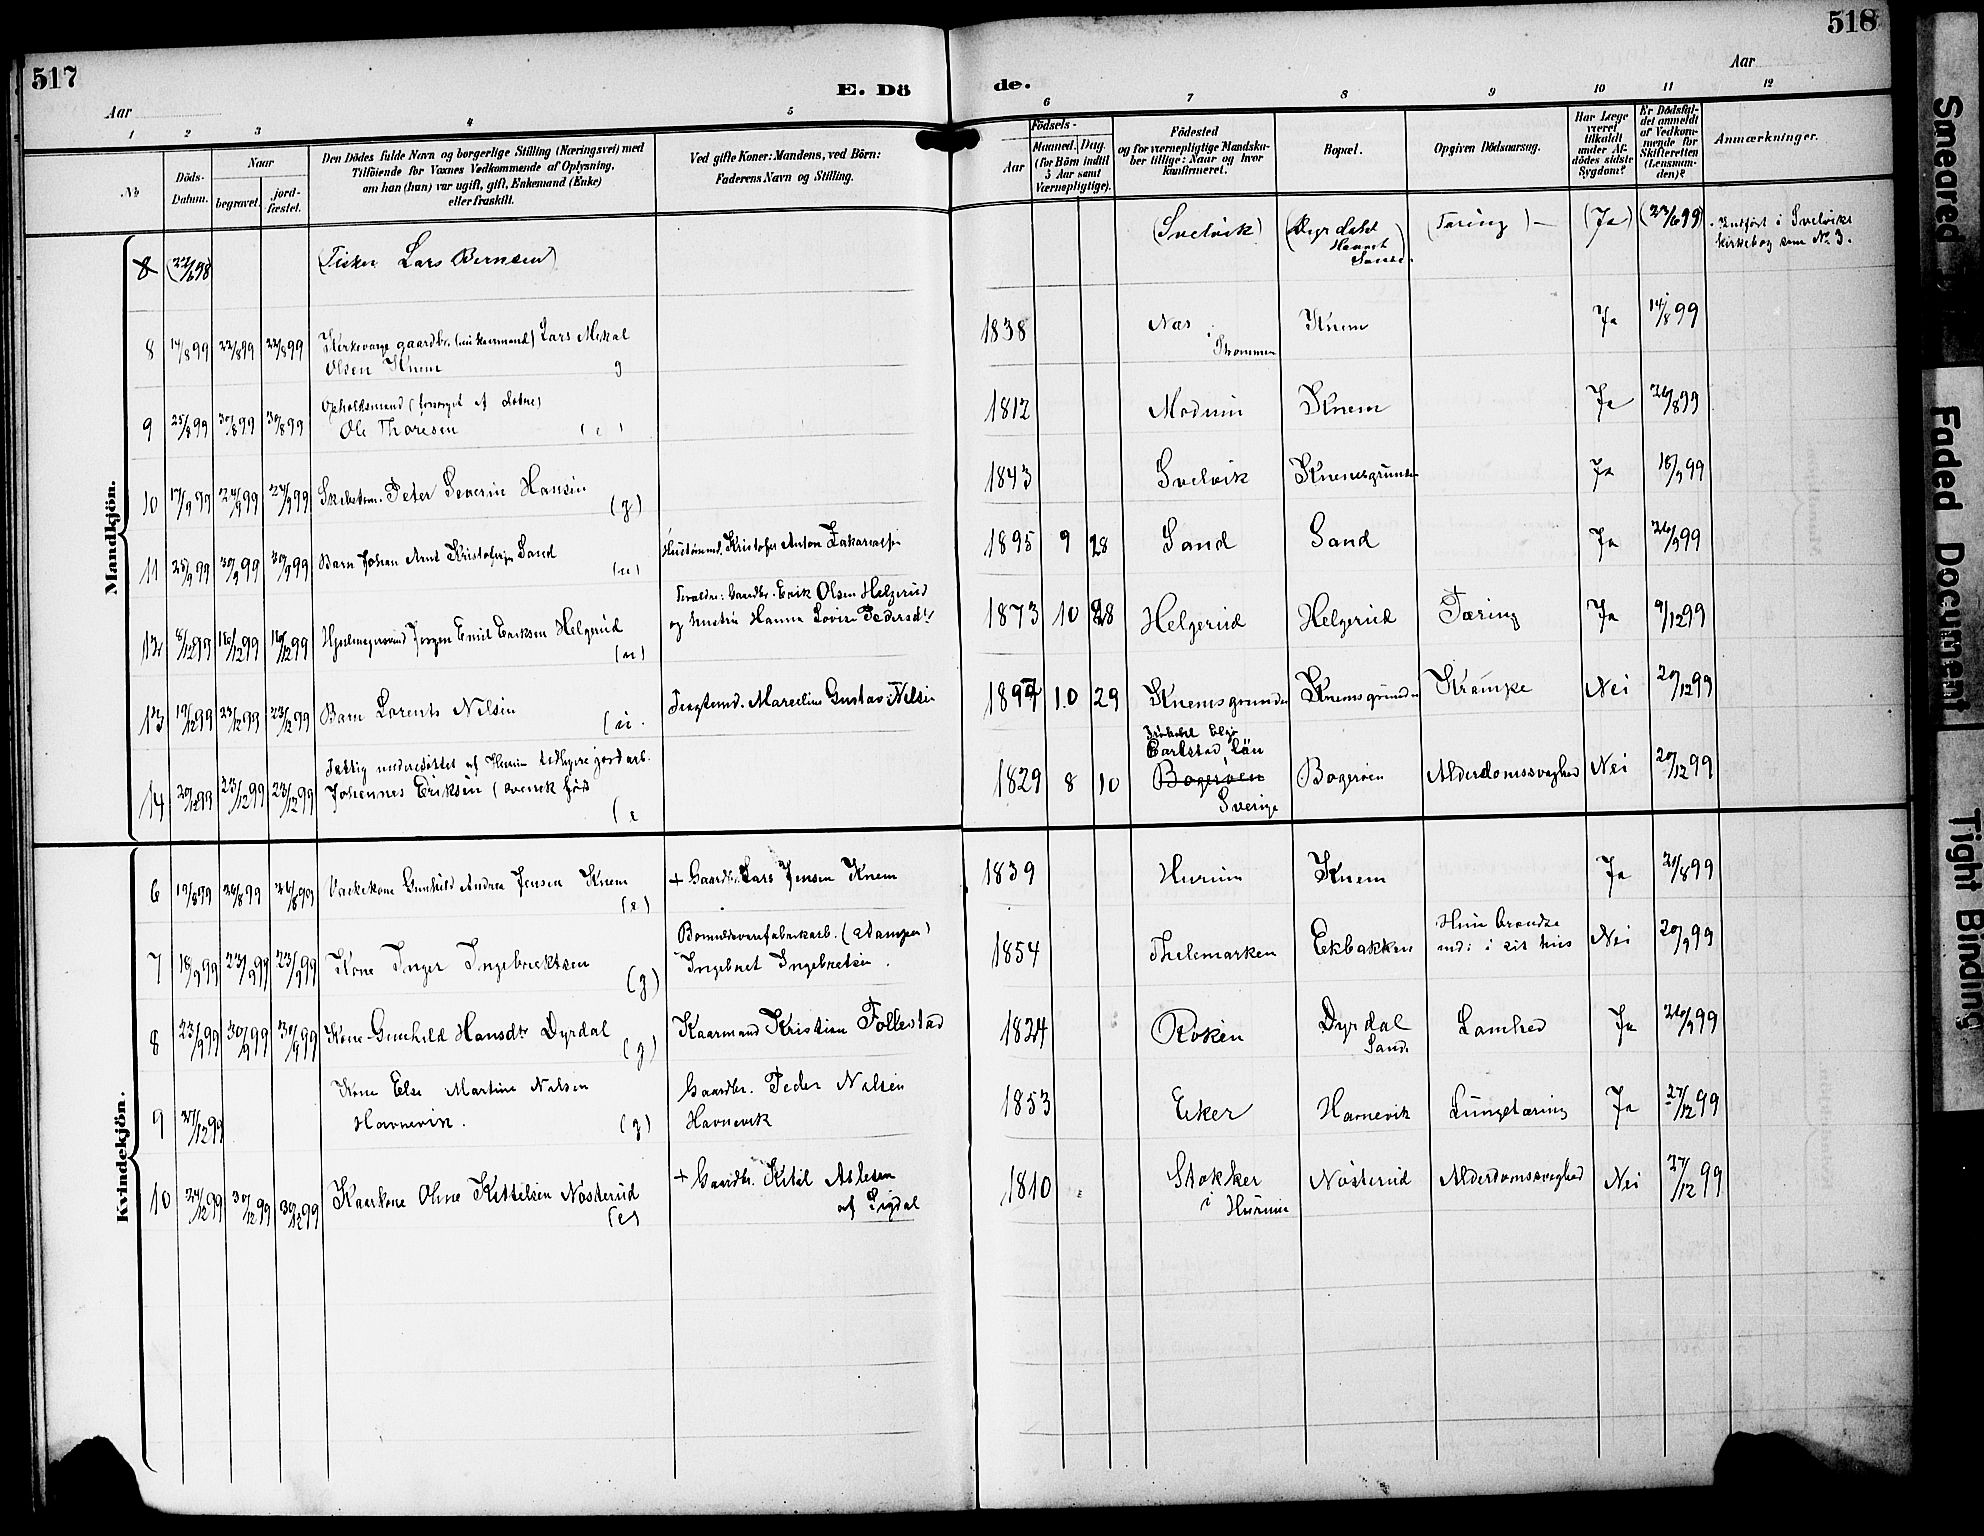 517
518
Aar
E. Dö
de.
Aar
1 2 3 4 5 6 7 8 9 10 11 12
No
Döds-
Datum.
Naar
begravet.
jord-
fæstet.
Den Dödes fulde Navn og borgerlige Stilling (Næringsvei) med
Tilföiende for Voxnes Vedkommende af Oplysning,
om han (hun) var ugift, gift, Enkemand (Enke)
eller fraskilt.
Ved gifte Koner: Mandens, ved Börn:
Faderens Navn og Stilling.
Födsels-
Aar
Maaned. Dag.
(for Börn indtil
5 Aar samt
Værnepligtige).
Födested
og for værnepligtige Mandska-
ber tillige: Naar og hvor
konfirmeret.
Bopæl.
Opgiven Dödsaarsag.
Har Læge
været
tilkaldt
under Af-
dödes sidste
Sygdom?
Er Dödsfal-
det anmeldt
af Vedkom-
mende for
Skifteretten
(Lensman-
den)?
Anmærkninger.
Mandkjön.
8 (Fisker Lars Bernsen) (Svelvik) (Dyrdalen (Tæring) — (Ja) (23/6 99) Indført i Svelviks
kirkebog som No 3.
8 14/8 99 22/8 99 22/8 99 Lars Mikal
Olsen Knem g
1838 Næs Knem Ja 14/8 99
9 25/8 99 30/8 99 30/8 99
Ole Thoresen (e)
1812 Modum Knem Ja 26/8 99
10 17/9 99 24/9 99 24/9 99 Peter Severin Hansen
(g)
1843 Svelvik Knemsgrunden Ja 18/9 99
11 25/9 99 30/9 99 30/9 99 Barn Johan Arnt Kristofersen Sand
(u)
Kristofer Anton Zakariassen
1895 9 28 Sand Sand Ja 26/9 99
12 8/12 99 16/12 99 16/12 99 Jørgen Emil Eriksen Helgerud
(u)
Forældre: Gaardbr. Erik Olsen Helgerud
og hustru Hanna Lovise Pedersdtr
1873 10 28 Helgerud Helgerud Tæring Ja 9/12 99
13 19/12 99 23/12 99 23/12 99 Barn Lorents Nilsen
(u.
Marcelius Gustav Nilsen
1897 10 29 Knemsgrunden Knemsgrunden Krampe Nei 20/12 99
14 20/12 99 23/12 99 23/12 99
Johannes Eriksen (svensk født
(e
1829 8 10
Carlstad Län
Bogerøen
Sverige
Bogerøen Alderdomssvaghed Nei 20/12 99
Kvindekjön.
6 19/8 99 26/8 99 26/8 99 Gunhild Andrea Jensen Knem
(e)
+ Gaardbr. Lars Jensen Knem
1839 Hurum Knem Ja 21/8 99
7 18/9 99 23/9 99 23/9 99 Kone Inger Ingebrektsen
(g)
Bomuldsvarefabrikarb.
Ingebret Ingebretsen
1854 Thelemarken Ekbakken
Hun brændte
ind i sit hus
Nei 20/9 99
8 23/9 99 30/9 99 30/9 99 Kone Gunhild Hansdtr Dyrdal
(g)
Kaarmand Kristian Follestad
1824 Røken Dyrdal
Sande
Lamhed Ja 26/9 99
9 27/12 99 Kone Else Martine Nilsen
Havnevik. (g)
Gaardbr. Peder Nilsen
Havnevik
1853 Eker Havnevik Lungetæring Ja 27/12 99
10 24/12 99 30/12 99 30/12 99 Kaarkone Oline Kittelsen Nøsterud
(e)
+ Gaardbr. Kitil Aslesen
af Sigdal
1810 Stokker
i Hurum
Nøsterud Alderdomssvaghed Nei 27/12 99
Smeared
Faded Document
Tight Binding